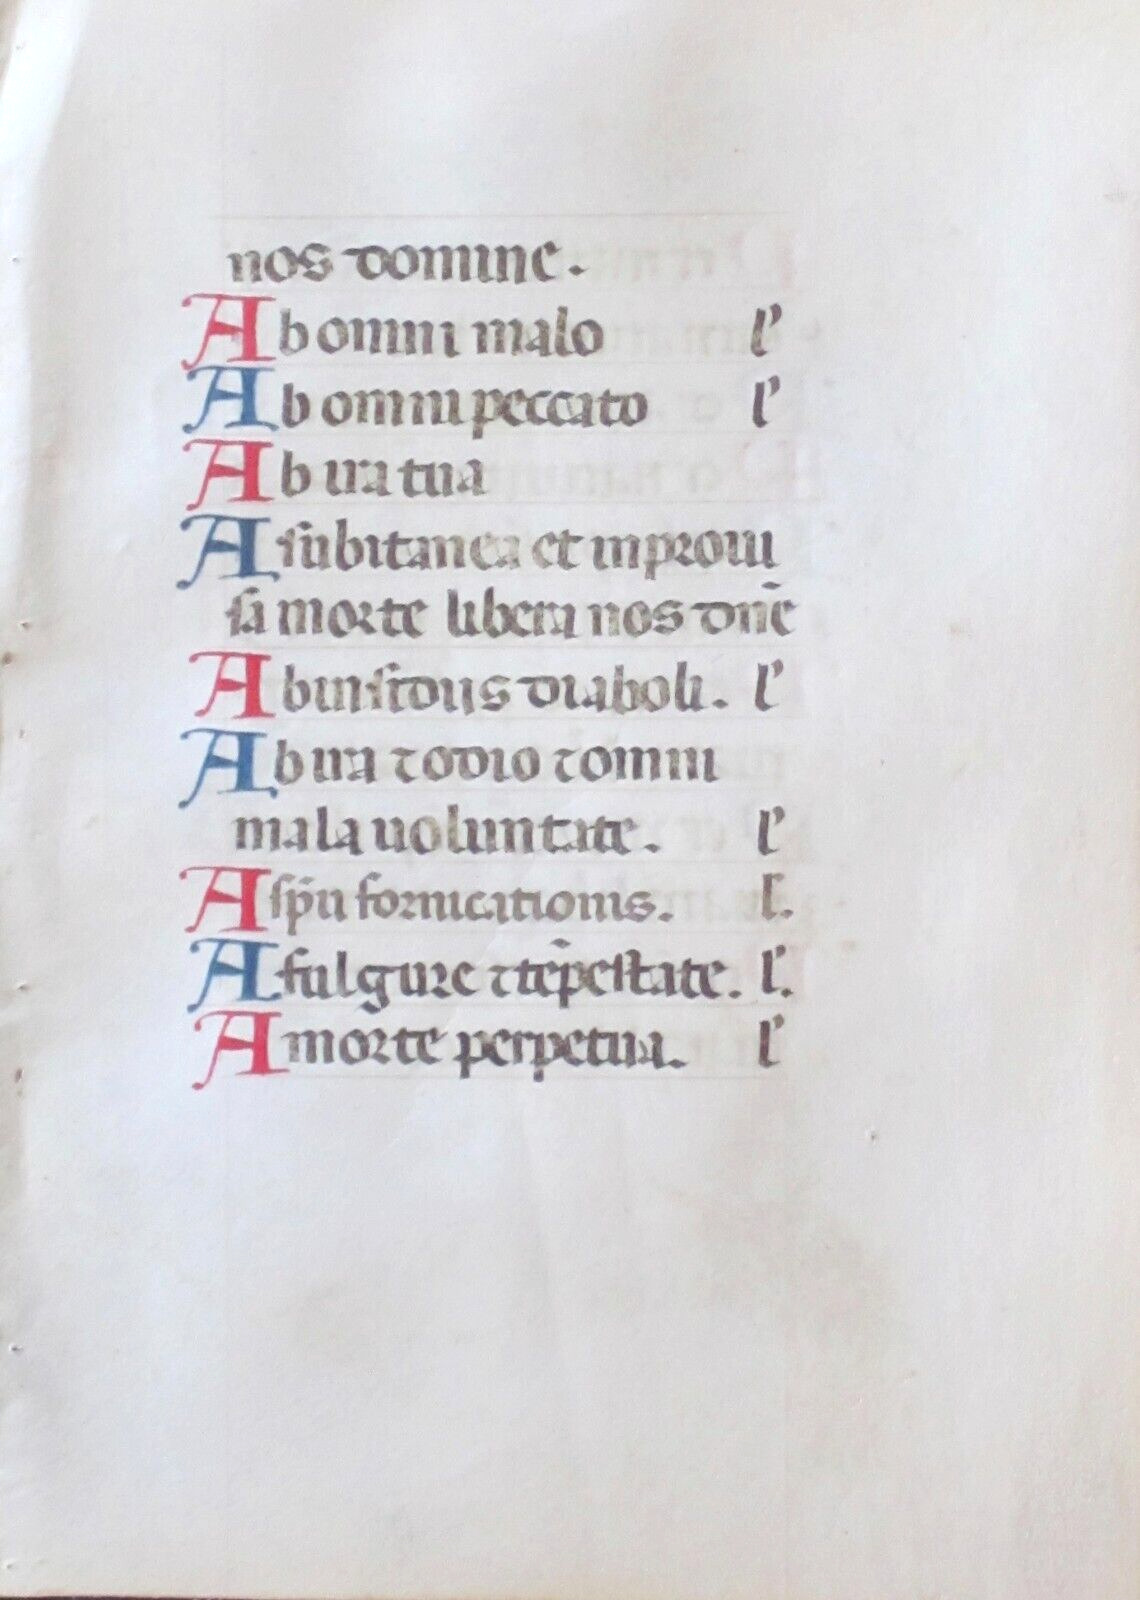 nos domine.
Ab omni malo l'
Ab omni peccato l'
Ab ira tua
A subitanea et improui
sa morte libera nos dn̄e
Ab insidiis diaboli. l'
Ab ira ⁊ odio ⁊ omni
mala uoluntate. l'
A sp̄u fornicationis. l.
A fulgure ⁊ tēpestate. l'.
A morte perpetua. l'